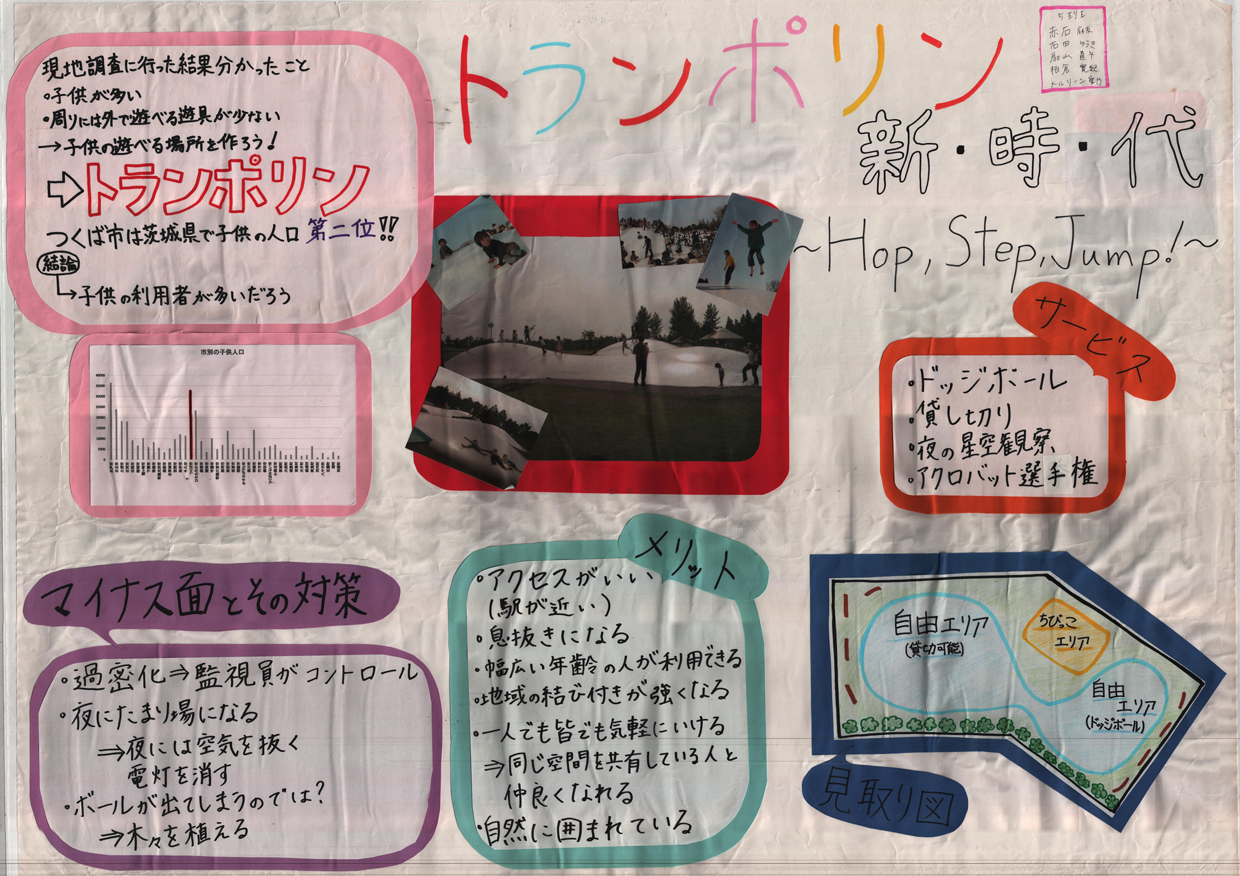 トランポリン
新・時・代
~Hop, Step, Jump!~
5班
現地調査に行った結果分かったこと
・子供が多い
・周りには外で遊べる遊具が少ない
→子供の遊べる場所を作ろう!
⇨トランポリン
つくば市は茨城県で子供の人口 第二位!!
結論
→子供の利用者が多いだろう
市別の子供人口
サービス
・ドッジボール
・貸し切り
・夜の星空観察
・アクロバット選手権
マイナス面とその対策
・過密化⇒監視員がコントロール
・夜にたまり場になる
⇒夜には空気を抜く
電灯を消す
・ボールが出てしまうのでは?
⇒木々を植える
メリット
・アクセスがいい
(駅が近い)
・息抜きになる
・幅広い年齢の人が利用できる
・地域の結び付きが強くなる
・一人でも皆でも気軽にいける
⇒同じ空間を共有している人と
仲良くなれる
・自然に囲まれている
自由エリア
(貸切可能)
ちびっこ
エリア
自由
エリア
(ドッジボール)
見取り図